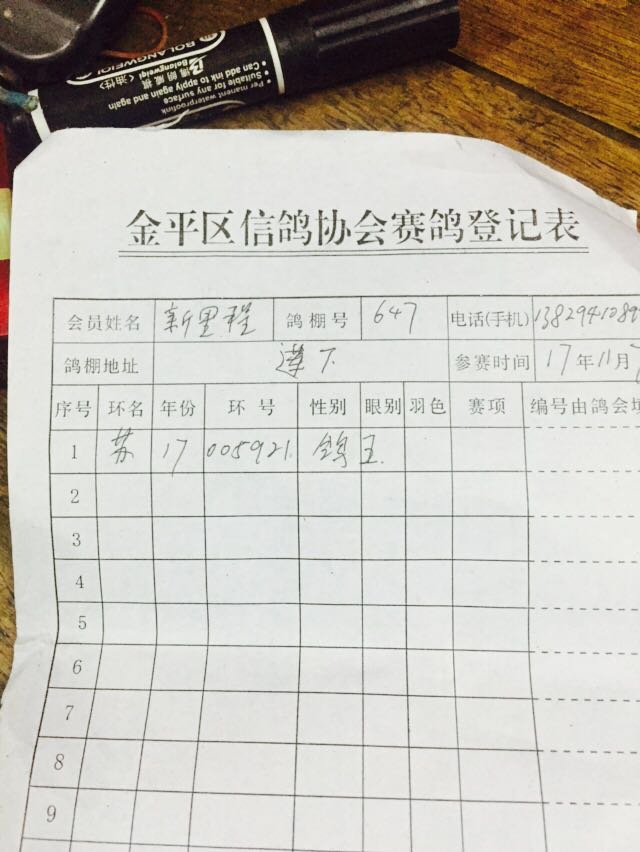 BOLANGWEIQI
博朗威棋〈油性〉
Bolangweiqi
Permanent waterproofink
Suitable for any surface
Can add ink to apply again and again
金平区信鸽协会赛鸽登记表
会员姓名 新里程 鸽棚号 647 电话(手机) 138294108
鸽棚地址 下 参赛时间 17年11月
序号 环名 年份 环号 性别 眼别 羽色 赛项 编号由鸽会填
1 苏 17 005921. 鸽王
2
3
4
5
6
7
8
9